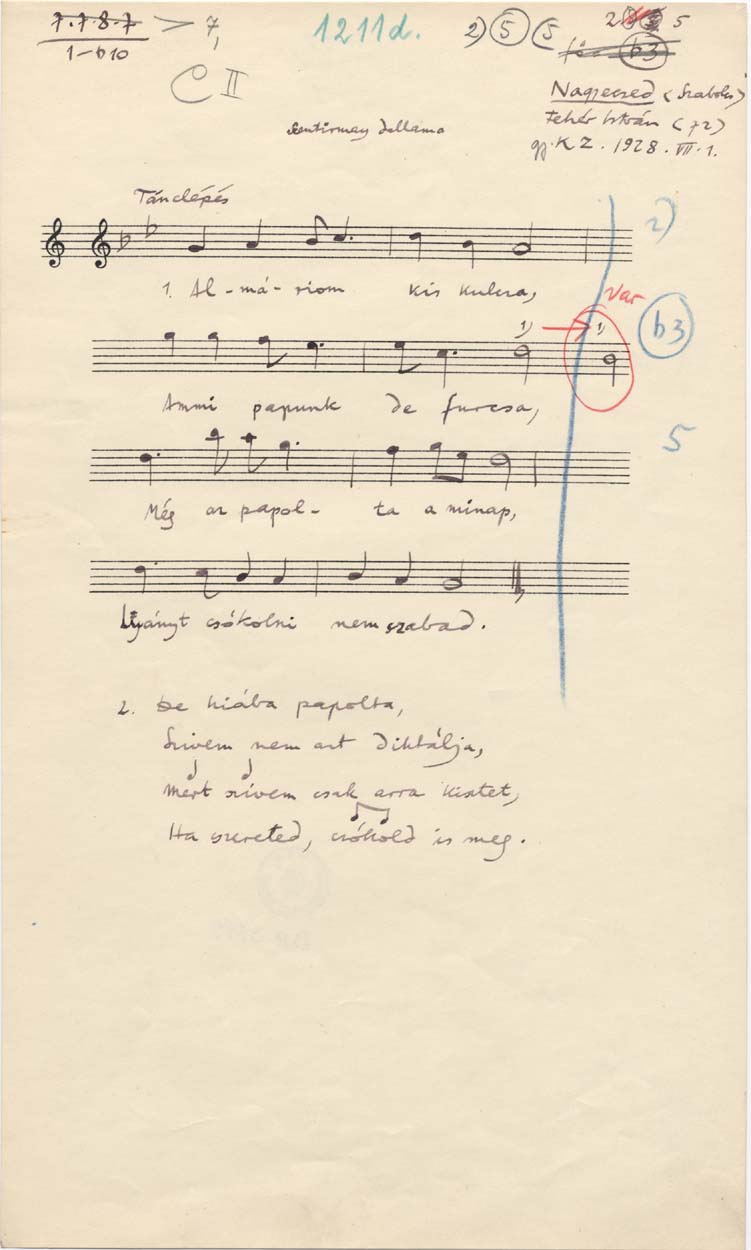 7.7.8.7 > 7,
1-b10
1211d.
2) 5 5
2 5
b3
C II
Nagyecsed (Szabolcs)
Fehér István (72)
gy. K Z. 1928. VII. 1.
Szentirmay dallama
Tánclépés
2)
1. Al-má-riom kis kulcsa,
Var
1) 1)
b3
Ammi papunk de furcsa,
5
Még az papol- ta a minap,
Lyányt csókolni nem szabad.
2. De hiába papolta,
Szivem nem azt diktálja,
Mert szívem csak arra kisztet,
Ha szereted, csókold is meg.